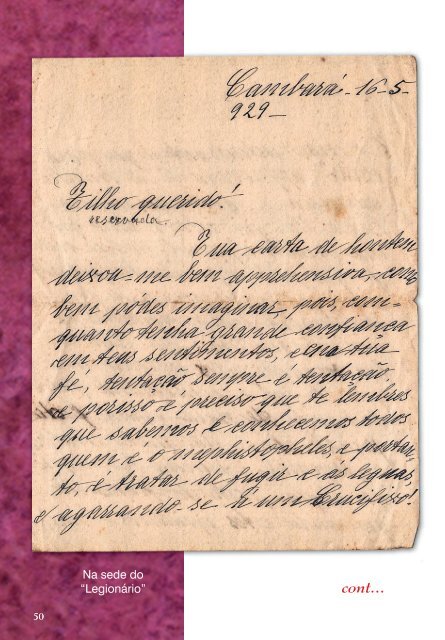 Cambará - 16-5-
929 -
Filho querido!
reservada.
Tua carta de hontem
deixou-me bem apprehensiva, como
bem pódes imaginar, pois, em-
quanto tenha grande confiança
em teus sentimentos, e na tua
fé, tentação sempre é tentação,
e porisso é preciso que te lembres
que sabemos e conhecemos todos
quem é o mephistopheles, e portan-
to, é tratar de fugir e ás leguas,
e agarrando-se á um Crucifixo!
Na sede do
“Legionário”
cont…
50